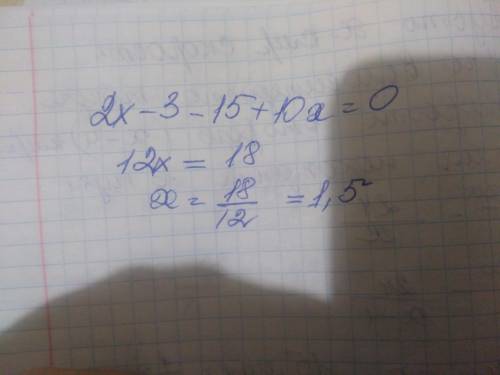 2x - 3 - 15 + 10x = 0
12x = 18
x = 18/12 = 1,5